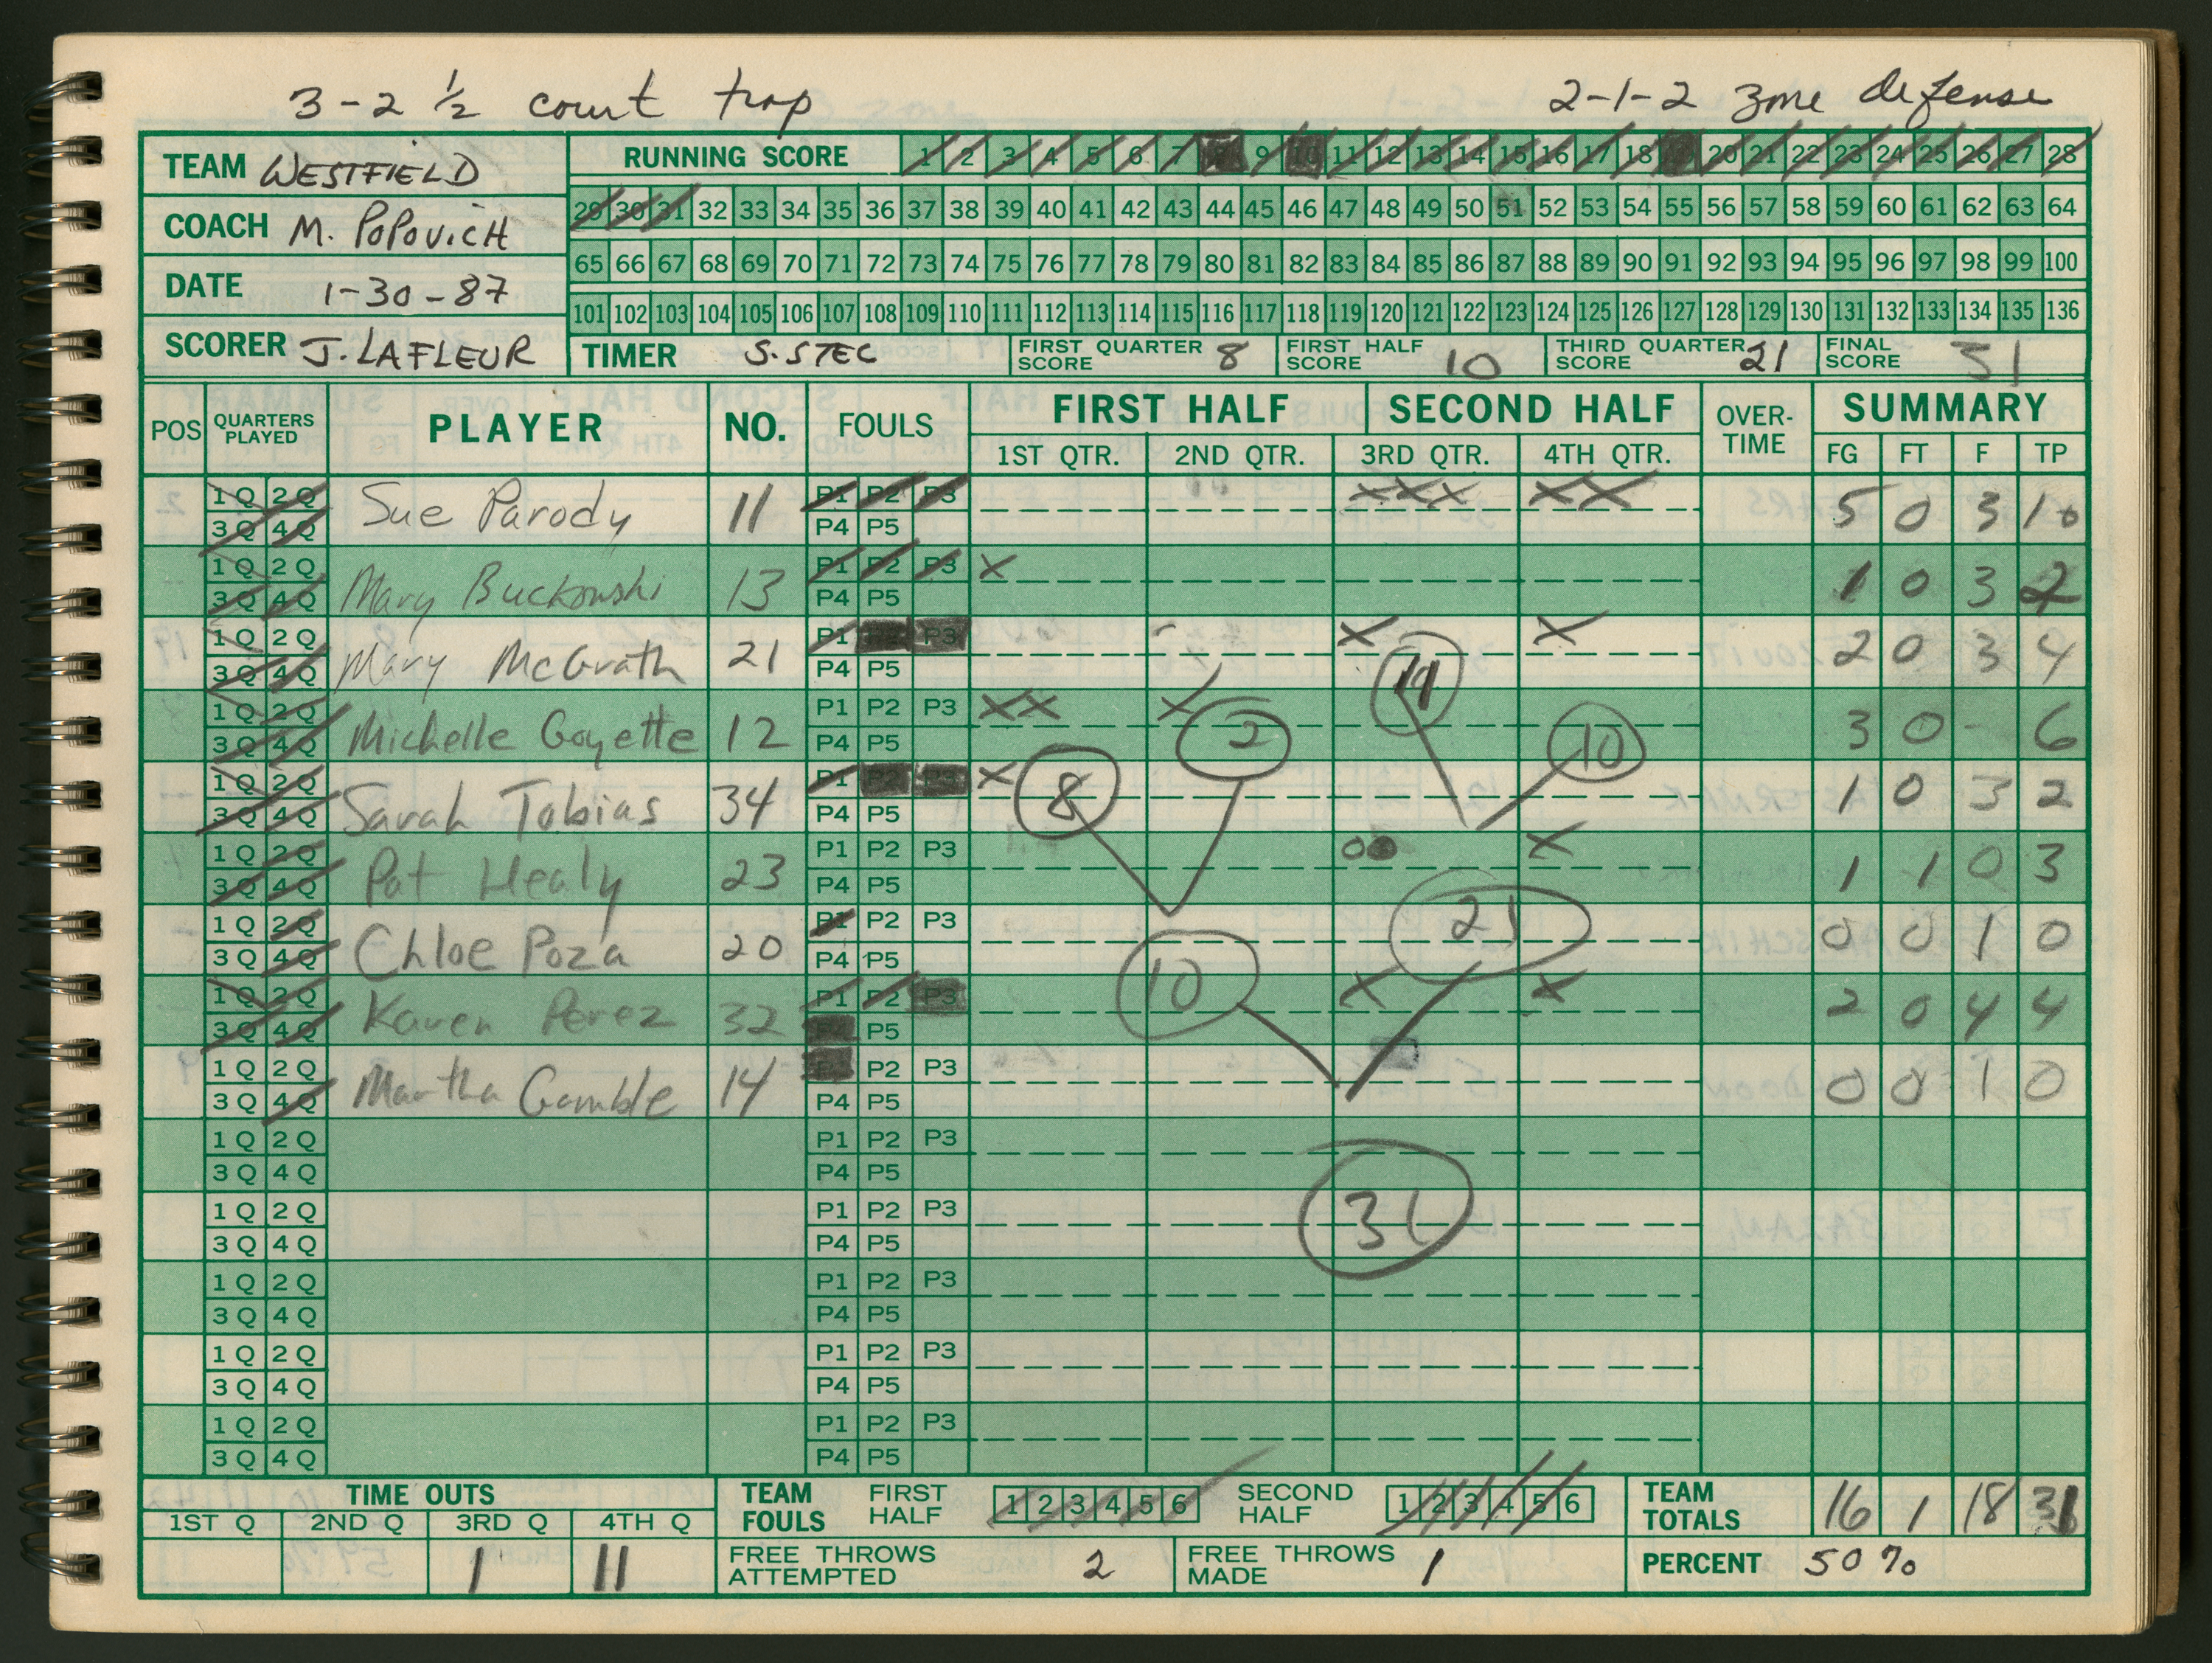 3-2 ½ court trap
2-1-2 zone defense
TEAM WESTFIELD
COACH M. POPOVICH
DATE 1-30-87
SCORER J. LAFLEUR
RUNNING SCORE 1 2 3 4 5 6 7 9 10 11 12 13 14 15 16 17 18 20 21 22 23 24 25 26 27 28
29 30 31 32 33 34 35 36 37 38 39 40 41 42 43 44 45 46 47 48 49 50 51 52 53 54 55 56 57 58 59 60 61 62 63 64
65 66 67 68 69 70 71 72 73 74 75 76 77 78 79 80 81 82 83 84 85 86 87 88 89 90 91 92 93 94 95 96 97 98 99 100
101 102 103 104 105 106 107 108 109 110 111 112 113 114 115 116 117 118 119 120 121 122 123 124 125 126 127 128 129 130 131 132 133 134 135 136
TIMER S. STEC
FIRST QUARTER SCORE 8
FIRST HALF SCORE 10
THIRD QUARTER SCORE 21
FINAL SCORE 31
POS QUARTERS PLAYED PLAYER NO. FOULS FIRST HALF SECOND HALF OVER-TIME SUMMARY
1ST QTR. 2ND QTR. 3RD QTR. 4TH QTR. FG FT F TP
1 Q 2 Q Sue Parody 11 P1 P2 P3 XXX XX 5 0 3 10
3 Q 4 Q P4 P5
1 Q 2 Q Mary Buckowski 13 P1 P2 P3 X 1 0 3 2
3 Q 4 Q P4 P5
1 Q 2 Q Mary McGrath 21 P1 P3 X X 2 0 3 4
3 Q 4 Q P4 P5 11
1 Q 2 Q Michelle Goyette 12 P1 P2 P3 XX X 3 0 - 6
3 Q 4 Q P4 P5 2 10
1 Q 2 Q Sarah Tobias 34 P1 P2 P3 X 1 0 3 2
3 Q 4 Q P4 P5 8
1 Q 2 Q Pat Healy 23 P1 P2 P3 O● X 1 1 0 3
3 Q 4 Q P4 P5
1 Q 2 Q Chloe Poza 20 P1 P2 P3 21 0 0 1 0
3 Q 4 Q P4 P5
1 Q 2 Q Karen Perez 32 P1 P2 P3 10 X X 2 0 4 4
3 Q 4 Q P5
1 Q 2 Q Martha Gamble 14 P2 P3 0 0 1 0
3 Q 4 Q P4 P5
1 Q 2 Q P1 P2 P3
3 Q 4 Q P4 P5
1 Q 2 Q P1 P2 P3 31
3 Q 4 Q P4 P5
1 Q 2 Q P1 P2 P3
3 Q 4 Q P4 P5
1 Q 2 Q P1 P2 P3
3 Q 4 Q P4 P5
1 Q 2 Q P1 P2 P3
3 Q 4 Q P4 P5
TIME OUTS
1ST Q 2ND Q 3RD Q 4TH Q
1 11
TEAM FOULS FIRST HALF 1 2 3 4 5 6 SECOND HALF 1 2 3 4 5 6
TEAM TOTALS 16 1 18 31
FREE THROWS ATTEMPTED 2
FREE THROWS MADE 1
PERCENT 50%